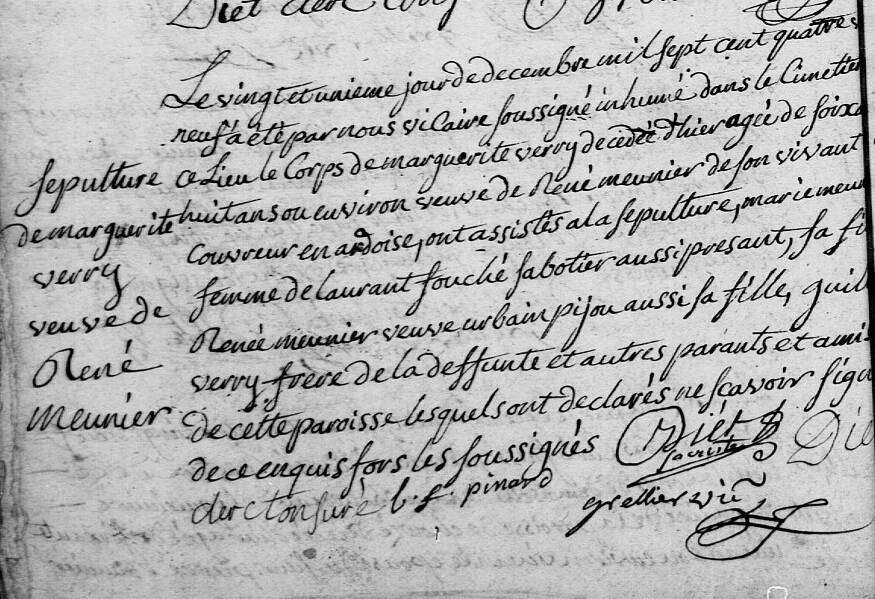 Diet clerc
Le vingt et unieme jour de decembre mil sept cent quatre v
neuf a été par nous vicaire soussigné inhumé dans le Cimetier
ce Lieu le Corps de marguerite verry decedée d'hier agée de soixa
huit ans ou environ veuve de René meunier de son vivant
Couvreur en ardoise, ont assistés a la sepulture, marie meun
femme de laurant fouché sabotier aussi presant, sa fi
Renée meunier veuve urbain pijou aussi sa fille, guill
verry frère de la deffunte et autres parants et amis
de cette paroisse lesquels ont declarés ne sçavoir sign
de ce enquis fors les soussignés
Diet
sacriste
Die
clerc tonsuré l. f. pinard
grellier vic
sepulture
de marguerite
verry
veuve de
René
meunier